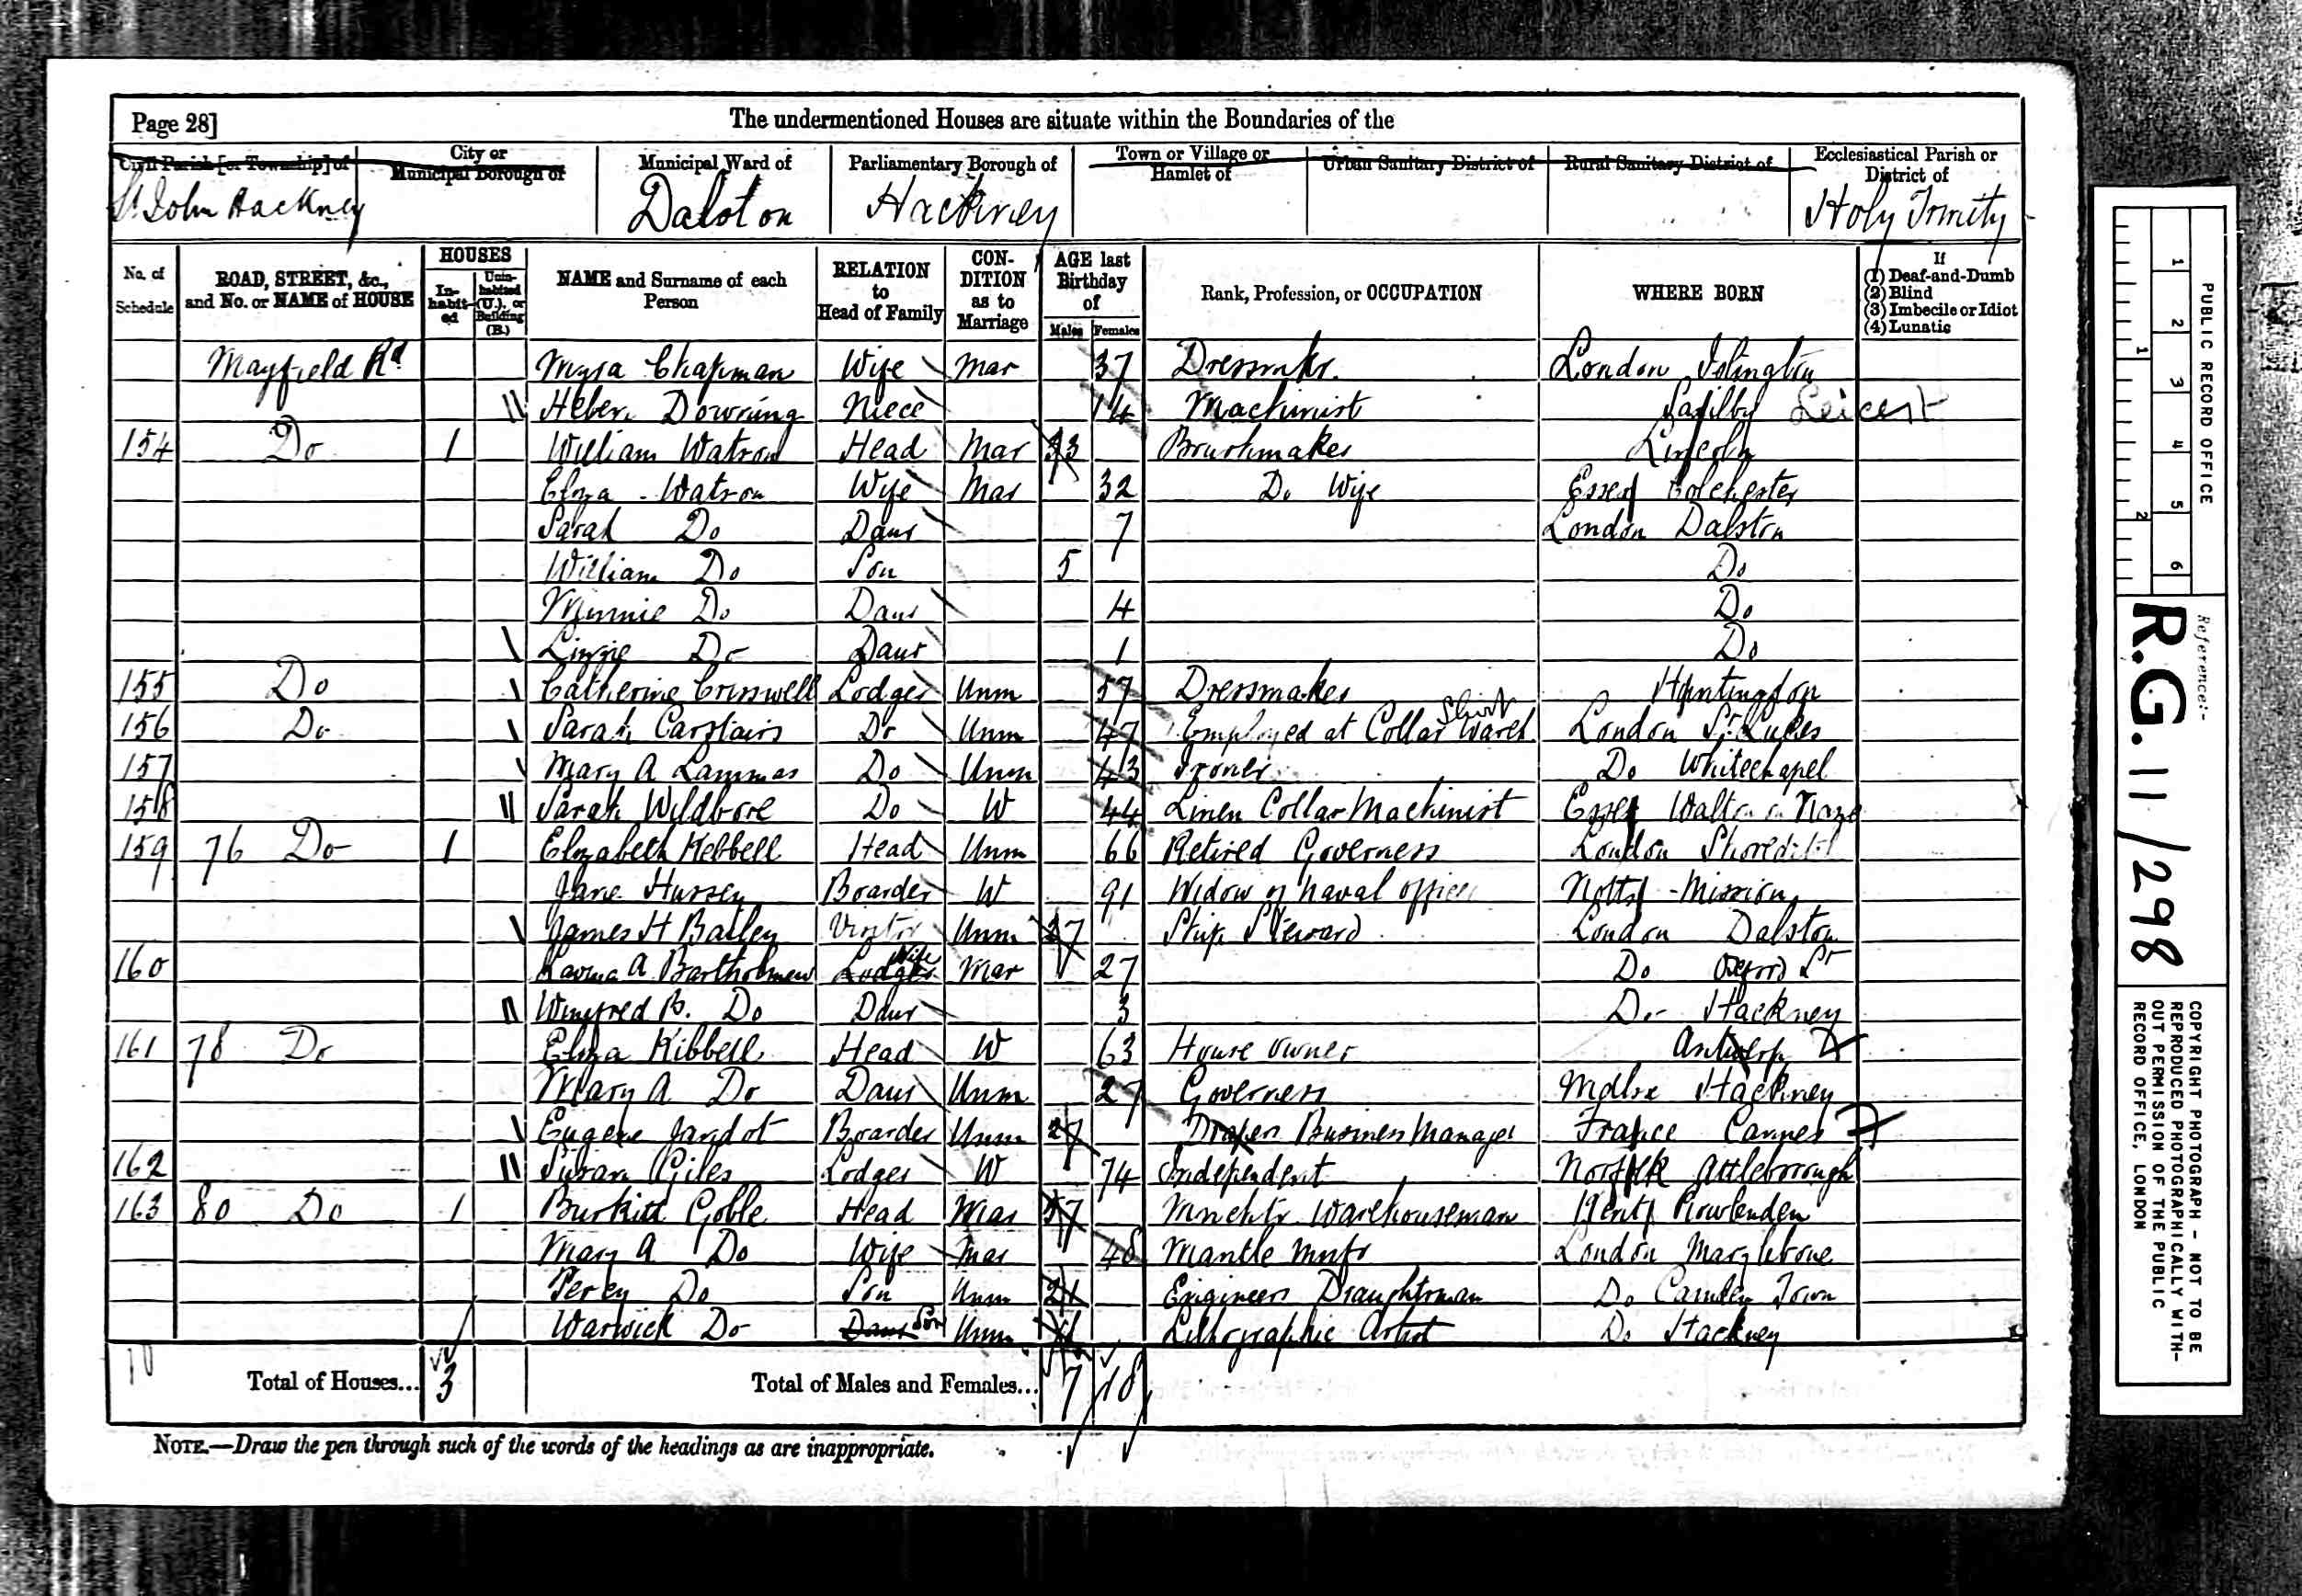 Page 28]
The undermentioned Houses are situate within the Boundaries of the
Civil Parish [or Township] of
City or Municipal Borough of
Municipal Ward of
Parliamentary Borough of
Town or Village or Hamlet of
Urban Sanitary District of
Rural Sanitary District of
Ecclesiastical Parish or District of
St John Hackney
Dalston
Hackney
Holy Trinity
No. of Schedule
ROAD, STREET, &c., and No. or NAME of HOUSE
HOUSES
In-habit-ed
Unin-habited (U.), or Building (B.)
NAME and Surname of each Person
RELATION to Head of Family
CON-DITION as to Marriage
AGE last Birthday of
Males
Females
Rank, Profession, or OCCUPATION
WHERE BORN
If
(1) Deaf-and-Dumb
(2) Blind
(3) Imbecile or Idiot
(4) Lunatic
Mayfield Rd Myra Chapman Wife Mar 37 Dressmkr. London Islington
Downing Niece 14 Machinist Leicest
154 Do 1 William Watson Head Mar 33 Brushmaker Lincoln
Eliza Watson Wife Mar 32 Do Wife Essex Colchester
Sarah Do Daur 7 London Dalston
William Do Son 5 Do
Minnie Do Daur 4 Do
Lizzie Do Daur 1 Do
155 Do Catherine Criswell Lodger Unm 57 Dressmaker Huntingdon
156 Do Sarah Carstairs Do Unm 47 Employed at Collar Shirt Wareh London St Lukes
157 Mary A Lammas Do Unm 43 Ironer Do Whitechapel
158 Sarah Wildbore Do W 44 Linen Collar Machinist Essex Walton on Naze
159 76 Do 1 Elizabeth Kebbell Head Unm 66 Retired Governess London Shoreditch
Jane Hussey Boarder W 91 Widow of Naval officer Notts Misson
James H Bailey Visitor Unm 27 Ship Steward London Dalston
160 Lavinia A Bartholomew Lodger Wife Mar 27 Do Oxford St
Winifred B. Do Daur 3 Do Hackney
161 78 Do Eliza Kibbell Head W 63 House owner Antwerp
Mary A Do Daur Unm 27 Governess Mdlsx Hackney
Eugene Jandot Boarder Unm 27 Drapers Business Manager France Cannes
162 Susan Giles Lodger W 74 Independent Norfolk Attleborough
163 80 Do 1 Burkitt Goble Head Mar 57 Mnchtr Warehouseman Kent Rowlenden
Mary A Do Wife Mar 48 Mantle Mnfr London Marylebone
Percy Do Son Unm 21 Engineers Draughtsman Do Camden Town
Warwick Do Daur Son Unm Lithographic Artist Do Hackney
10
Total of Houses... 3
Total of Males and Females... 7 18
NOTE.—Draw the pen through such of the words of the headings as are inappropriate.
1 2 3 4 5 6
1 2
PUBLIC RECORD OFFICE
Reference:-
R.G. 11 / 298
COPYRIGHT PHOTOGRAPH - NOT TO BE REPRODUCED PHOTOGRAPHICALLY WITH-OUT PERMISSION OF THE PUBLIC RECORD OFFICE, LONDON